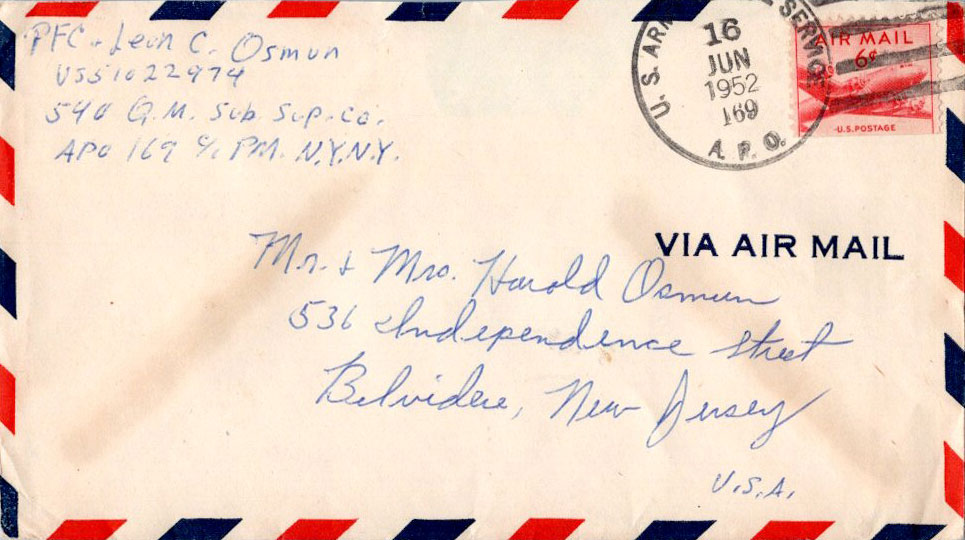 PFC. Leon C. Osmun
US51022974
540 Q.M. Sub. Sup. Co.
APO 169 c/o PM. N.Y.N.Y.
U.S. ARMY SERVICE
16
JUN
1952
169
A.P.O.
AIR MAIL
6¢
U.S. POSTAGE
VIA AIR MAIL
Mr. & Mrs. Harold Osmun
536 Independence Street
Belvidere, New Jersey
U.S.A.